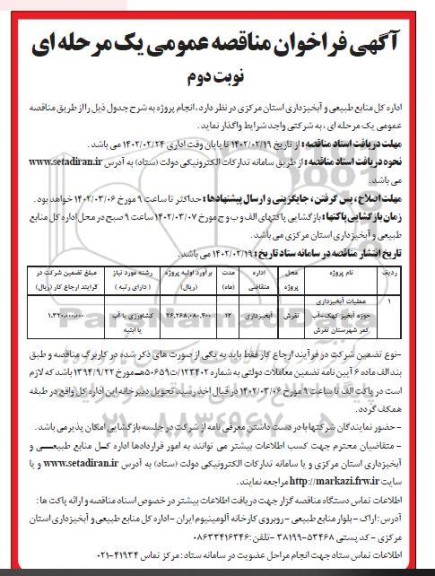 آگهی فراخوان مناقصه عمومی یک مرحله ای
نوبت دوم
اداره کل منابع طبیعی و آبخیزداری استان مرکزی در نظر دارد ، انجام پروژه به شرح جدول ذیل را از طریق مناقصه
عمومی یک مرحله ای ، به شرکتی واجد شرایط واگذار نماید .
مهلت دریافت اسناد مناقصه : از تاریخ ۱۴۰۲/۰۲/۱۹ تا پایان وقت اداری ۱۴۰۲/۰۲/۲۴ می باشد .
نحوه دریافت اسناد مناقصه : از طریق سامانه تدارکات الکترونیکی دولت (ستاد) به آدرس www.setadiran.ir
می باشد.
مهلت اصلاح ، پس گرفتن ، جایگزینی و ارسال پیشنهادها : حداکثر تا ساعت ۹ مورخ ۱۴۰۲/۰۳/۰۶ خواهد بود .
زمان بازگشایی پاکتها : بازگشایی پاکتهای الف و ب و ج مورخ ۱۴۰۲/۰۳/۰۷ ساعت ۹ صبح در محل اداره کل منابع
طبیعی و آبخیزداری استان مرکزی می باشد.
تاریخ انتشار مناقصه در سامانه ستاد تاریخ : ۱۴۰۲/۰۲/۱۹ می باشد.
ردیف نام پروژه محل پروژه اداره متقاضی مدت (ماه) برآورد اولیه پروژه (ریال) رشته مورد نیاز (دارای رتبه) مبلغ تضمین شرکت در فرآیند ارجاع کار (ریال)
۱ عملیات آبخیزداری حوزه آبخیز کهک سآب قمر شهرستان تفرش تفرش آبخیزداری ۱۲ کشاورزی یا آب یا ابنیه
-نوع تضمین شرکت در فرآیند ارجاع کار فقط باید به یکی از صورت های ذکر شده در کاربرگ مناقصه و طبق
بندالف ماده ۶ آیین نامه تضمین معاملات دولتی به شماره ۱۲۳۴۰۲/ت۵۰۶۵۹هـ مورخ ۱۳۹۴/۹/۲۲ باشد که لازم
است در پاکت الف تا ساعت ۹ مورخ ۱۴۰۲/۰۳/۰۶ در قبال اخذ رسید تحویل دبیرخانه این اداره کل واقع در طبقه
همکف گردد.
- حضور نمایندگان شرکتها با در دست داشتن معرفی نامه از شرکت در جلسه بازگشایی امکان پذیر می باشد.
- متقاضیان محترم جهت کسب اطلاعات بیشتر می توانند به امور قراردادها اداره کل منابع طبیعی و
آبخیزداری استان مرکزی و یا سامانه تدارکات الکترونیکی دولت (ستاد) به آدرس www.setadiran.ir و یا
سایت http://markazi.frw.ir مراجعه نمایند.
اطلاعات تماس دستگاه مناقصه گزار جهت دریافت اطلاعات بیشتر در خصوص اسناد مناقصه و ارائه پاکت ها :
آدرس : اراک - بلوار منابع طبیعی - روبروی کارخانه آلومینیوم ایران - اداره کل منابع طبیعی و آبخیزداری استان
مرکزی - کد پستی ۵۳۴۶۸-۳۸۱۹۹ - تلفن : ۰۸۶۳۳۴۱۶۳۴۶
اطلاعات تماس ستاد جهت انجام مراحل عضویت در سامانه ستاد : مرکز تماس ۴۱۹۳۴-۰۲۱